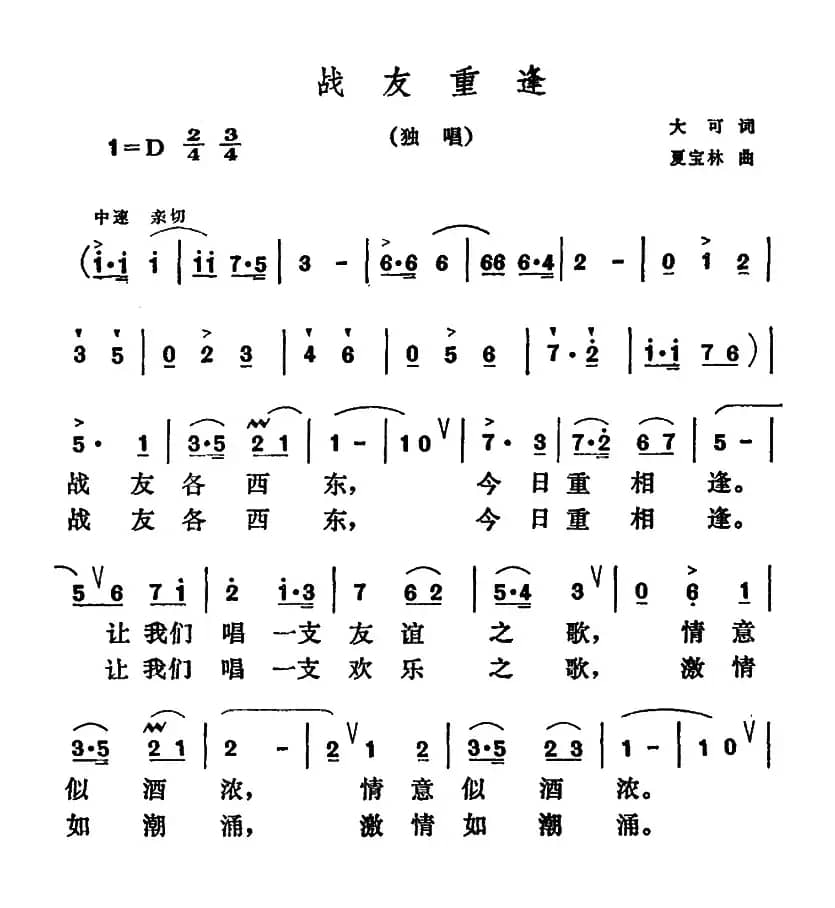 战友重逢
(独唱)
1=D 2/4 3/4
大可词
夏宝林 曲
中速 亲切
(i·i i | ii 7·5 | 3 - | 6·6 6 | 66 6·4 | 2 - | 0 1 2
3 5 | 0 2 3 | 4 6 | 0 5 6 | 7·2 | i·i 7 6 ) |
5· 1 | 3·5 2 1 | 1 - | 1 0 V | 7· 3 | 7·2 6 7 | 5 -
战友各西东, 今日重相逢。
战友各西东, 今日重相逢。
5 V 6 7 i | 2 i·3 | 7 6 2 | 5·4 3 V | 0 6 1 |
让我们唱一支友谊之歌, 情意
让我们唱一支欢乐之歌, 激情
3·5 2 1 | 2 - | 2 V 1 2 | 3·5 2 3 | 1 - | 1 0 V |
似酒浓, 情意似酒浓。
如潮涌, 激情如潮涌。